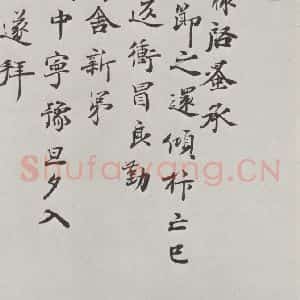 啓蚤承
節之還傾企亡已
衝冒良勤
舍新第
中寧豫旦夕入
遂拜
Shufawang.CN